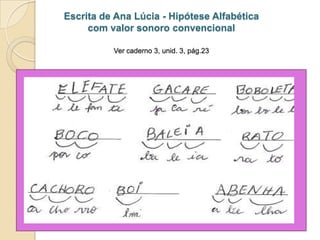 Escrita de Ana Lúcia - Hipótese Alfabética
com valor sonoro convencional
Ver caderno 3, unid. 3, pág.23
ELEFATE GACARE BOBOLETA
e le fan te ja ca ré
BOCO BALEIA RATO
por co ba le ia ra to
CACHORO BOI ABENHA
ca cho rro boi a be lha